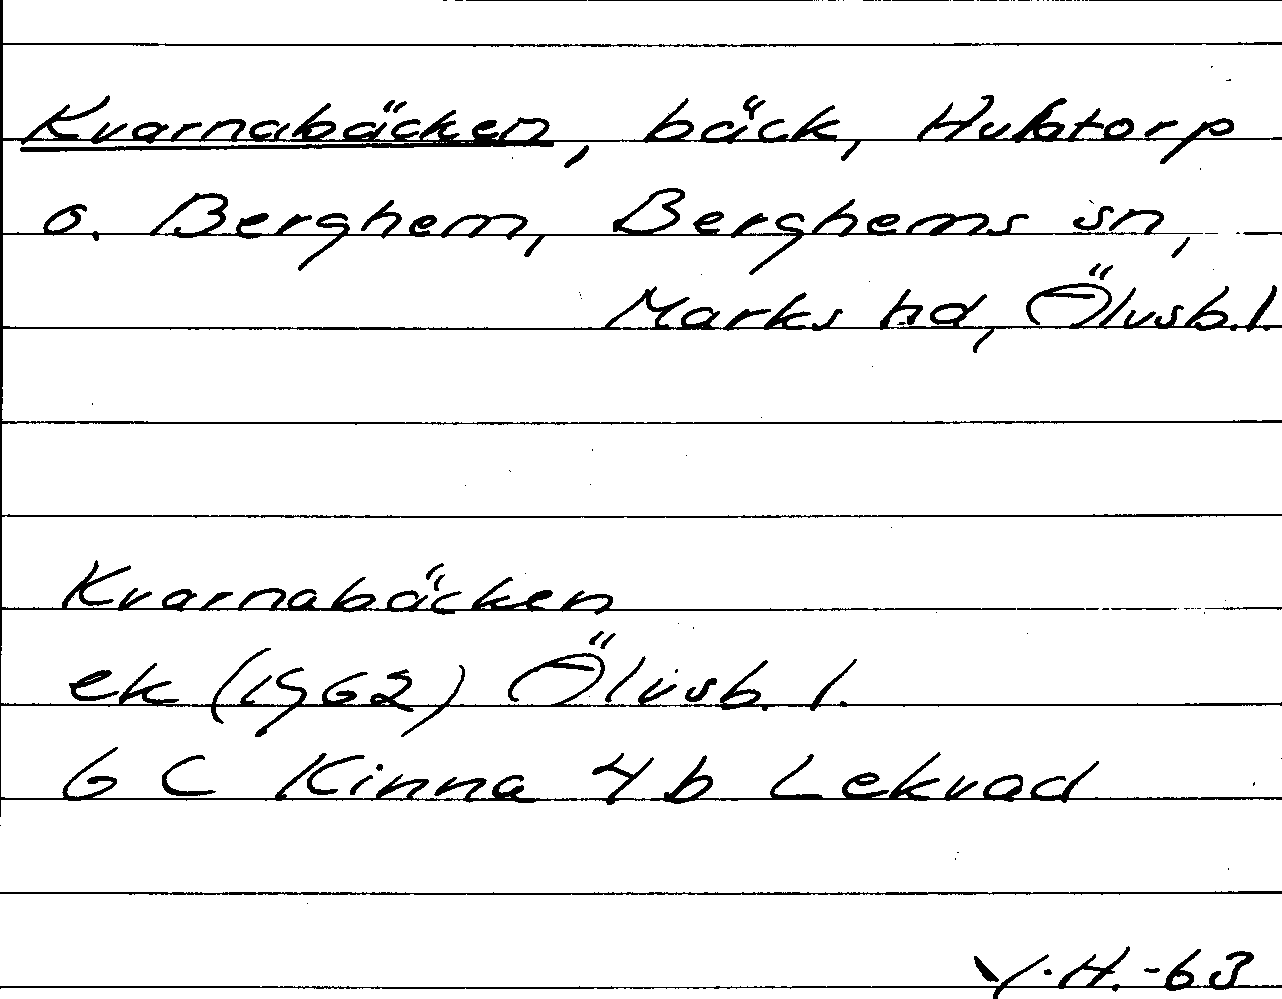 Kvarnabäcken, bäck, Hulatorp
o. Berghem, Berghems sn,
Marks hd, Älvsb. l.
Kvarnabäcken
ek (1962) Älvsb. l.
6 C Kinna 4 b Lekvad
Y.H. -63